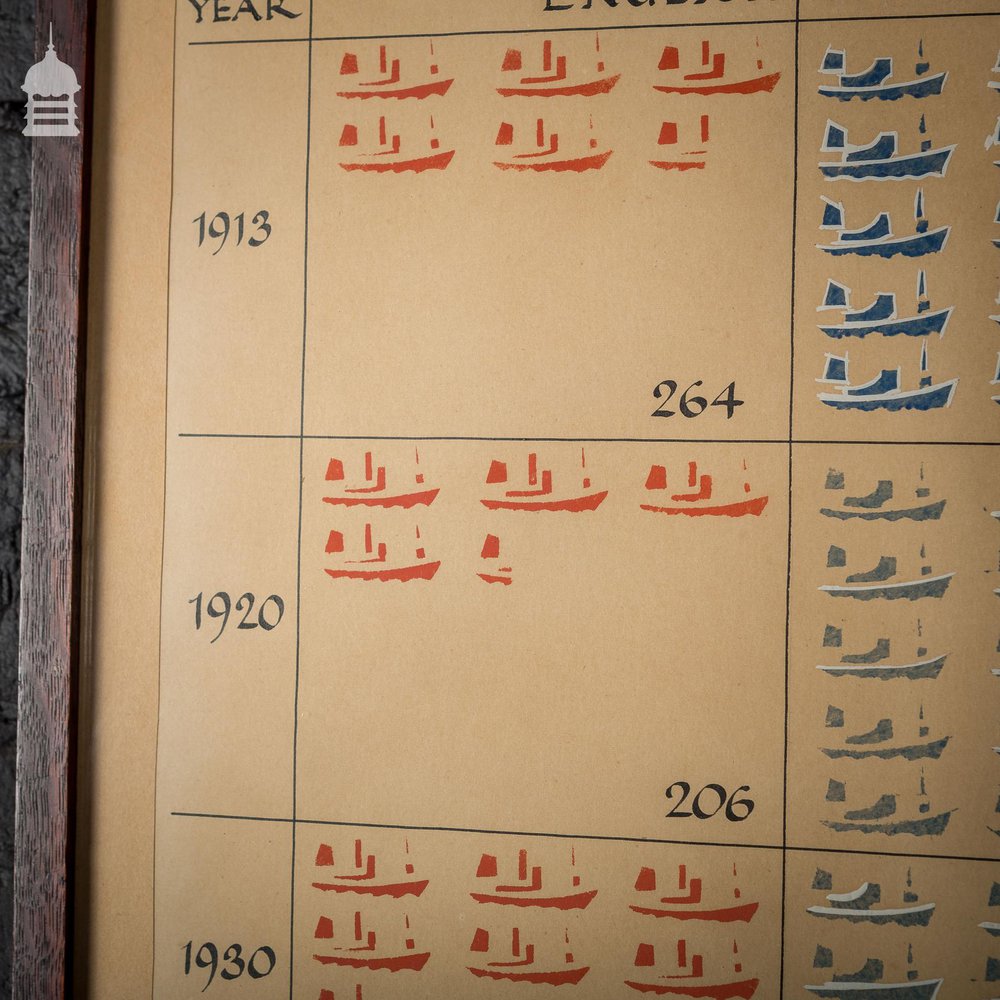 YEAR
1913
264
1920
206
1930